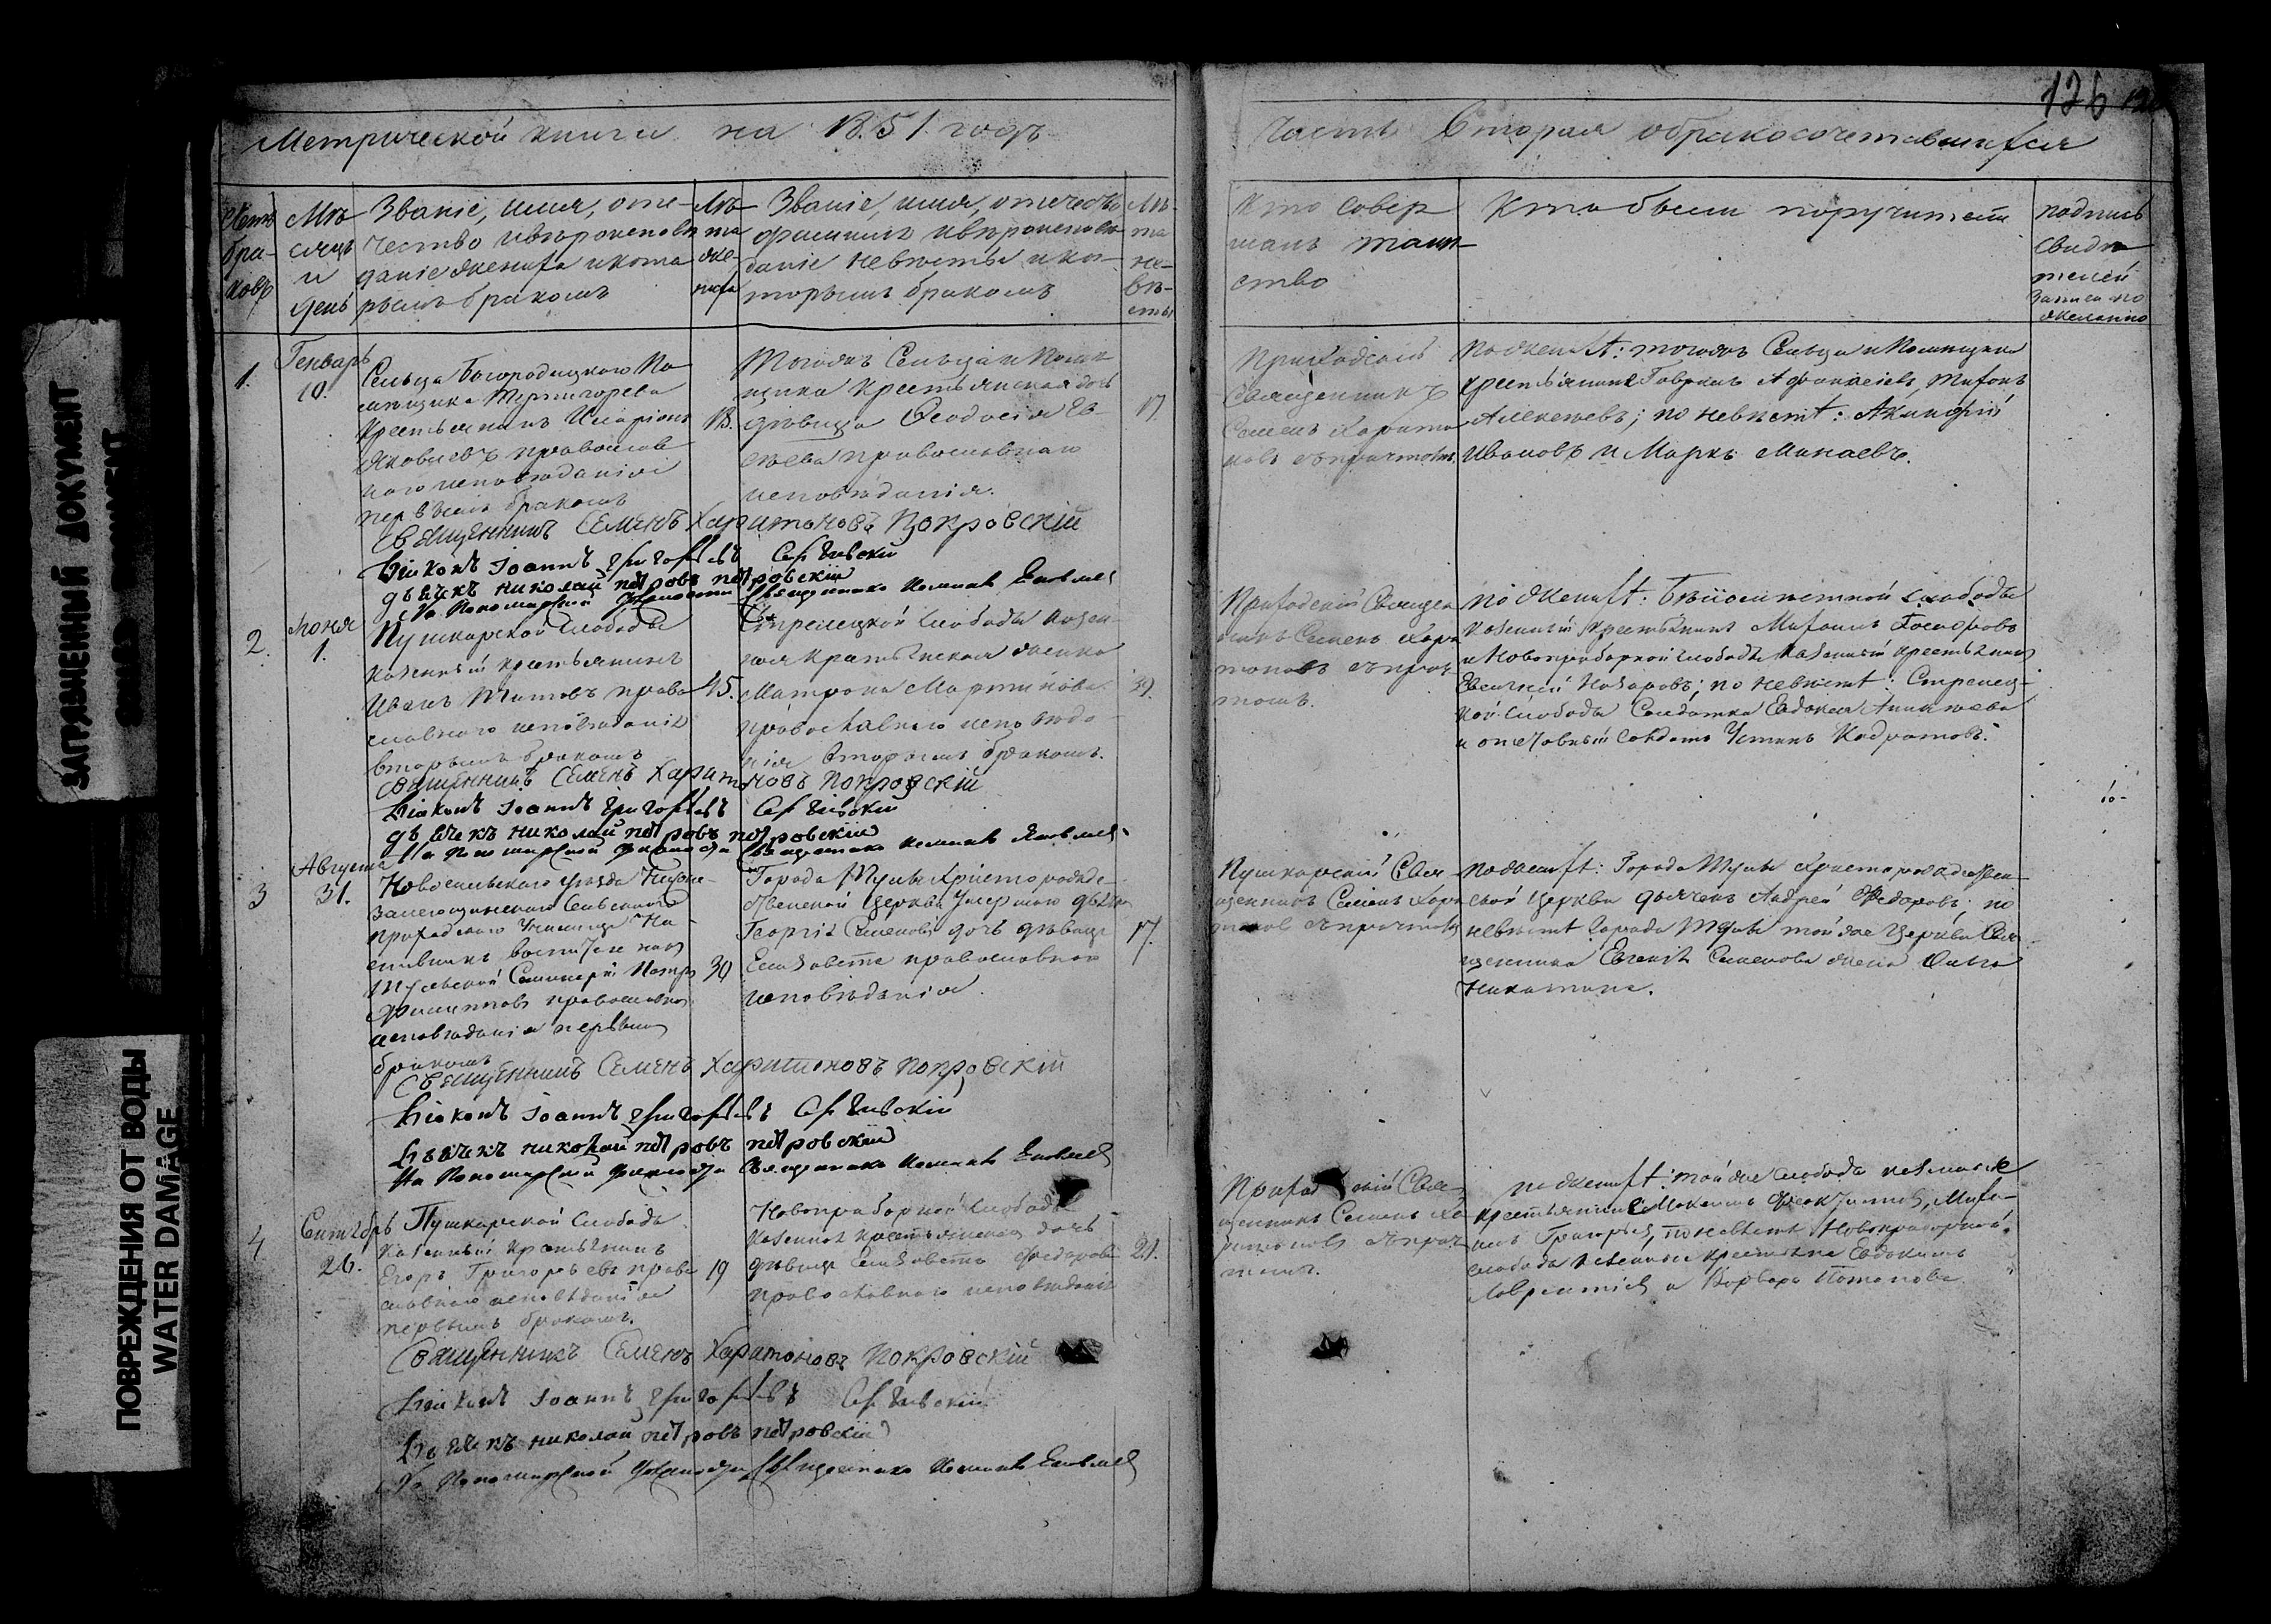 126
Метрической книги на 1851 годъ
Часть Вторая о бракосочетавшихся
Счетъ бра-ковъ
Мѣ-сяцъ и день
Званіе, имя, оте-
чество и вѣроисповѣ
даніе жениха и кото
рымъ бракомъ
Лѣ-
та
же-
ниха
Званіе, имя, отчество
фамилія и вѣроисповѣ
даніе невѣсты и ко-
торымъ бракомъ
Лѣ-
та
не-
вѣ-
сты
Кто совер
шалъ таин
ство
Кто были поручители
подпись
свидѣ
телей
записи по
желанію
1.
Генварь
10.
Сельца Богородицкаго По
мѣщика
Крестьянинъ Иларіонъ
Яковлевъ православ
наго исповѣданія
первымъ бракомъ
18.
Тогожъ Сельца и Помѣ
щика Крестьянская дочь
дѣвица Ѳеодосія Ев
сѣева православнаго
исповѣданія.
17.
Приходскій
Священникъ
Семенъ Харито
новъ съ причтомъ.
По женихѣ: тогожъ Сельца и Помѣщика
крестьяне Гаврилъ Афанасіевъ, Тихонъ
Алексѣевъ; по невѣстѣ: Акинфій
Ивановъ и Маркъ Минаевъ.
Священникъ Семенъ Харитоновъ Покровскій
Діаконъ Іоаннъ Григорьевъ Сергіевскій
Дьячекъ Николай Петровъ Петровскій
На Пономарской должности Священника
2.
Іюня
1.
Пушкарской Слободы
казенный крестьянинъ
Иванъ Титовъ право
славнаго исповѣданія
вторымъ бракомъ
45.
Стрелецкой Слободы казен-
ная крестьянская женка
Матрона Мартинова
православнаго исповѣда
нія вторымъ бракомъ.
39.
Приходскій Священ
никъ Семенъ Хари
тоновъ съ прич
томъ.
по женихѣ: слободы
казенный крестьянинъ Михаилъ
и Новоприборной слободы казенный крестьянинъ
Евсигней Назаровъ; по невѣстѣ: Стрелец-
кой Слободы Солдатка Евдокія Аникѣева
и солдатъ Устинъ Кодратовъ.
Священникъ Семенъ Харитоновъ Покровскій
Діаконъ Іоаннъ Григорьевъ Сергіевскій
Дьячекъ Николай Петровъ Петровскій
На Пономарской должности Священника
3
Августа
31.
Новосильскаго уѣзда
Сельскаго
приходскаго Училища На
ставникъ
Тульской Семинаріи Петръ
Филипповъ православнаго
исповѣданія первымъ
бракомъ
30
Города Тулы Христорожде
ственской Церкви умершаго
Георгія Семенова дочь дѣвица
Елизавета православнаго
исповѣданія.
17.
Пушкарскій Свя-
щенникъ Семенъ Хари
тоновъ съ причтомъ
По женихѣ: Города Тулы Христорождествен-
ской Церкви дьячекъ Андрей Федоровъ; по
невѣстѣ Города Тулы той же Церкви Свя
щенника Евгенія Семенова жена Ольга
Никитина.
Священникъ Семенъ Харитоновъ Покровскій
Діаконъ Іоаннъ Григорьевъ Сергіевскій
Дьячекъ Николай Петровъ Петровскій
На Пономарской должности Священника
4
Сентябрь
26.
Пушкарской Слободы
казенный крестьянинъ
Егоръ Григорьевъ право
славнаго исповѣданія
первымъ бракомъ.
19
Новоприборной Слободы
казенная крестьянская дочь
дѣвица Елизавета Федорова
православнаго исповѣданія
21.
Приходскій Свя-
щенникъ Семенъ Ха
ритоновъ съ прич
томъ.
по женихѣ: той же слободы казенные
крестьяне Феоктистовъ, Миха-
илъ Григорьевъ, по невѣстѣ Новоприборной
слободы казенные крестьяне Евдокимъ
Лаврентіевъ и Варвара Потапова.
Священникъ Семенъ Харитоновъ Покровскій
Діаконъ Іоаннъ Григорьевъ Сергіевскій
Дьячекъ Николай Петровъ Петровскій
На Пономарской должности Священника
ЗАГРЯЗНЕННЫЙ ДОКУМЕНТ
ПОВРЕЖДЕНИЯ ОТ ВОДЫ
WATER DAMAGE